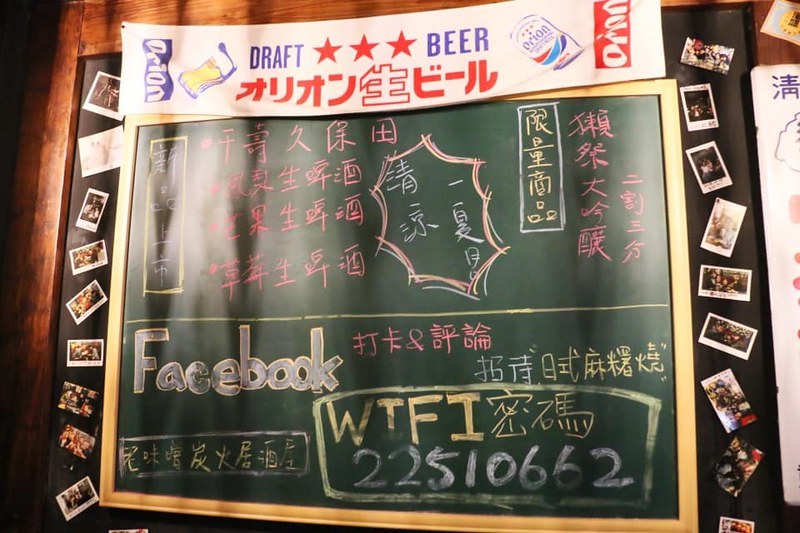 DRAFT ★★★ BEER
オリオン生ビール
Orion
Orion
新品上市
•千壽久保田
•鳳梨生啤酒
•芒果生啤酒
•草莓生啤酒
清涼一夏
限量商品
獺祭大吟釀
二割三分
Facebook 打卡&評論
招待"日式麻糬燒"
味噌炭火居酒屋
WIFI密碼
22510662
清